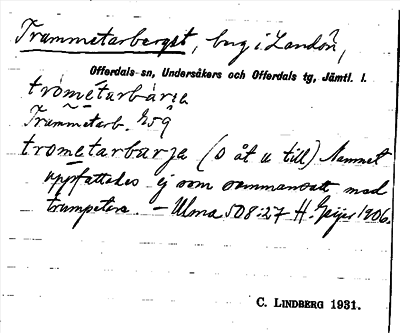 Trummetarberget, berg i Landön,
Offerdals sn, Undersåkers och Offerdals tg, Jämtl. l.
trómetarbárja
Trummetarb. E59
trometarbarja (o åt u till) Namnet
uppfattades ej som sammansatt med
trumpetare. – Ulma 508:27 H. Geijer 1906.
C. LINDBERG 1931.